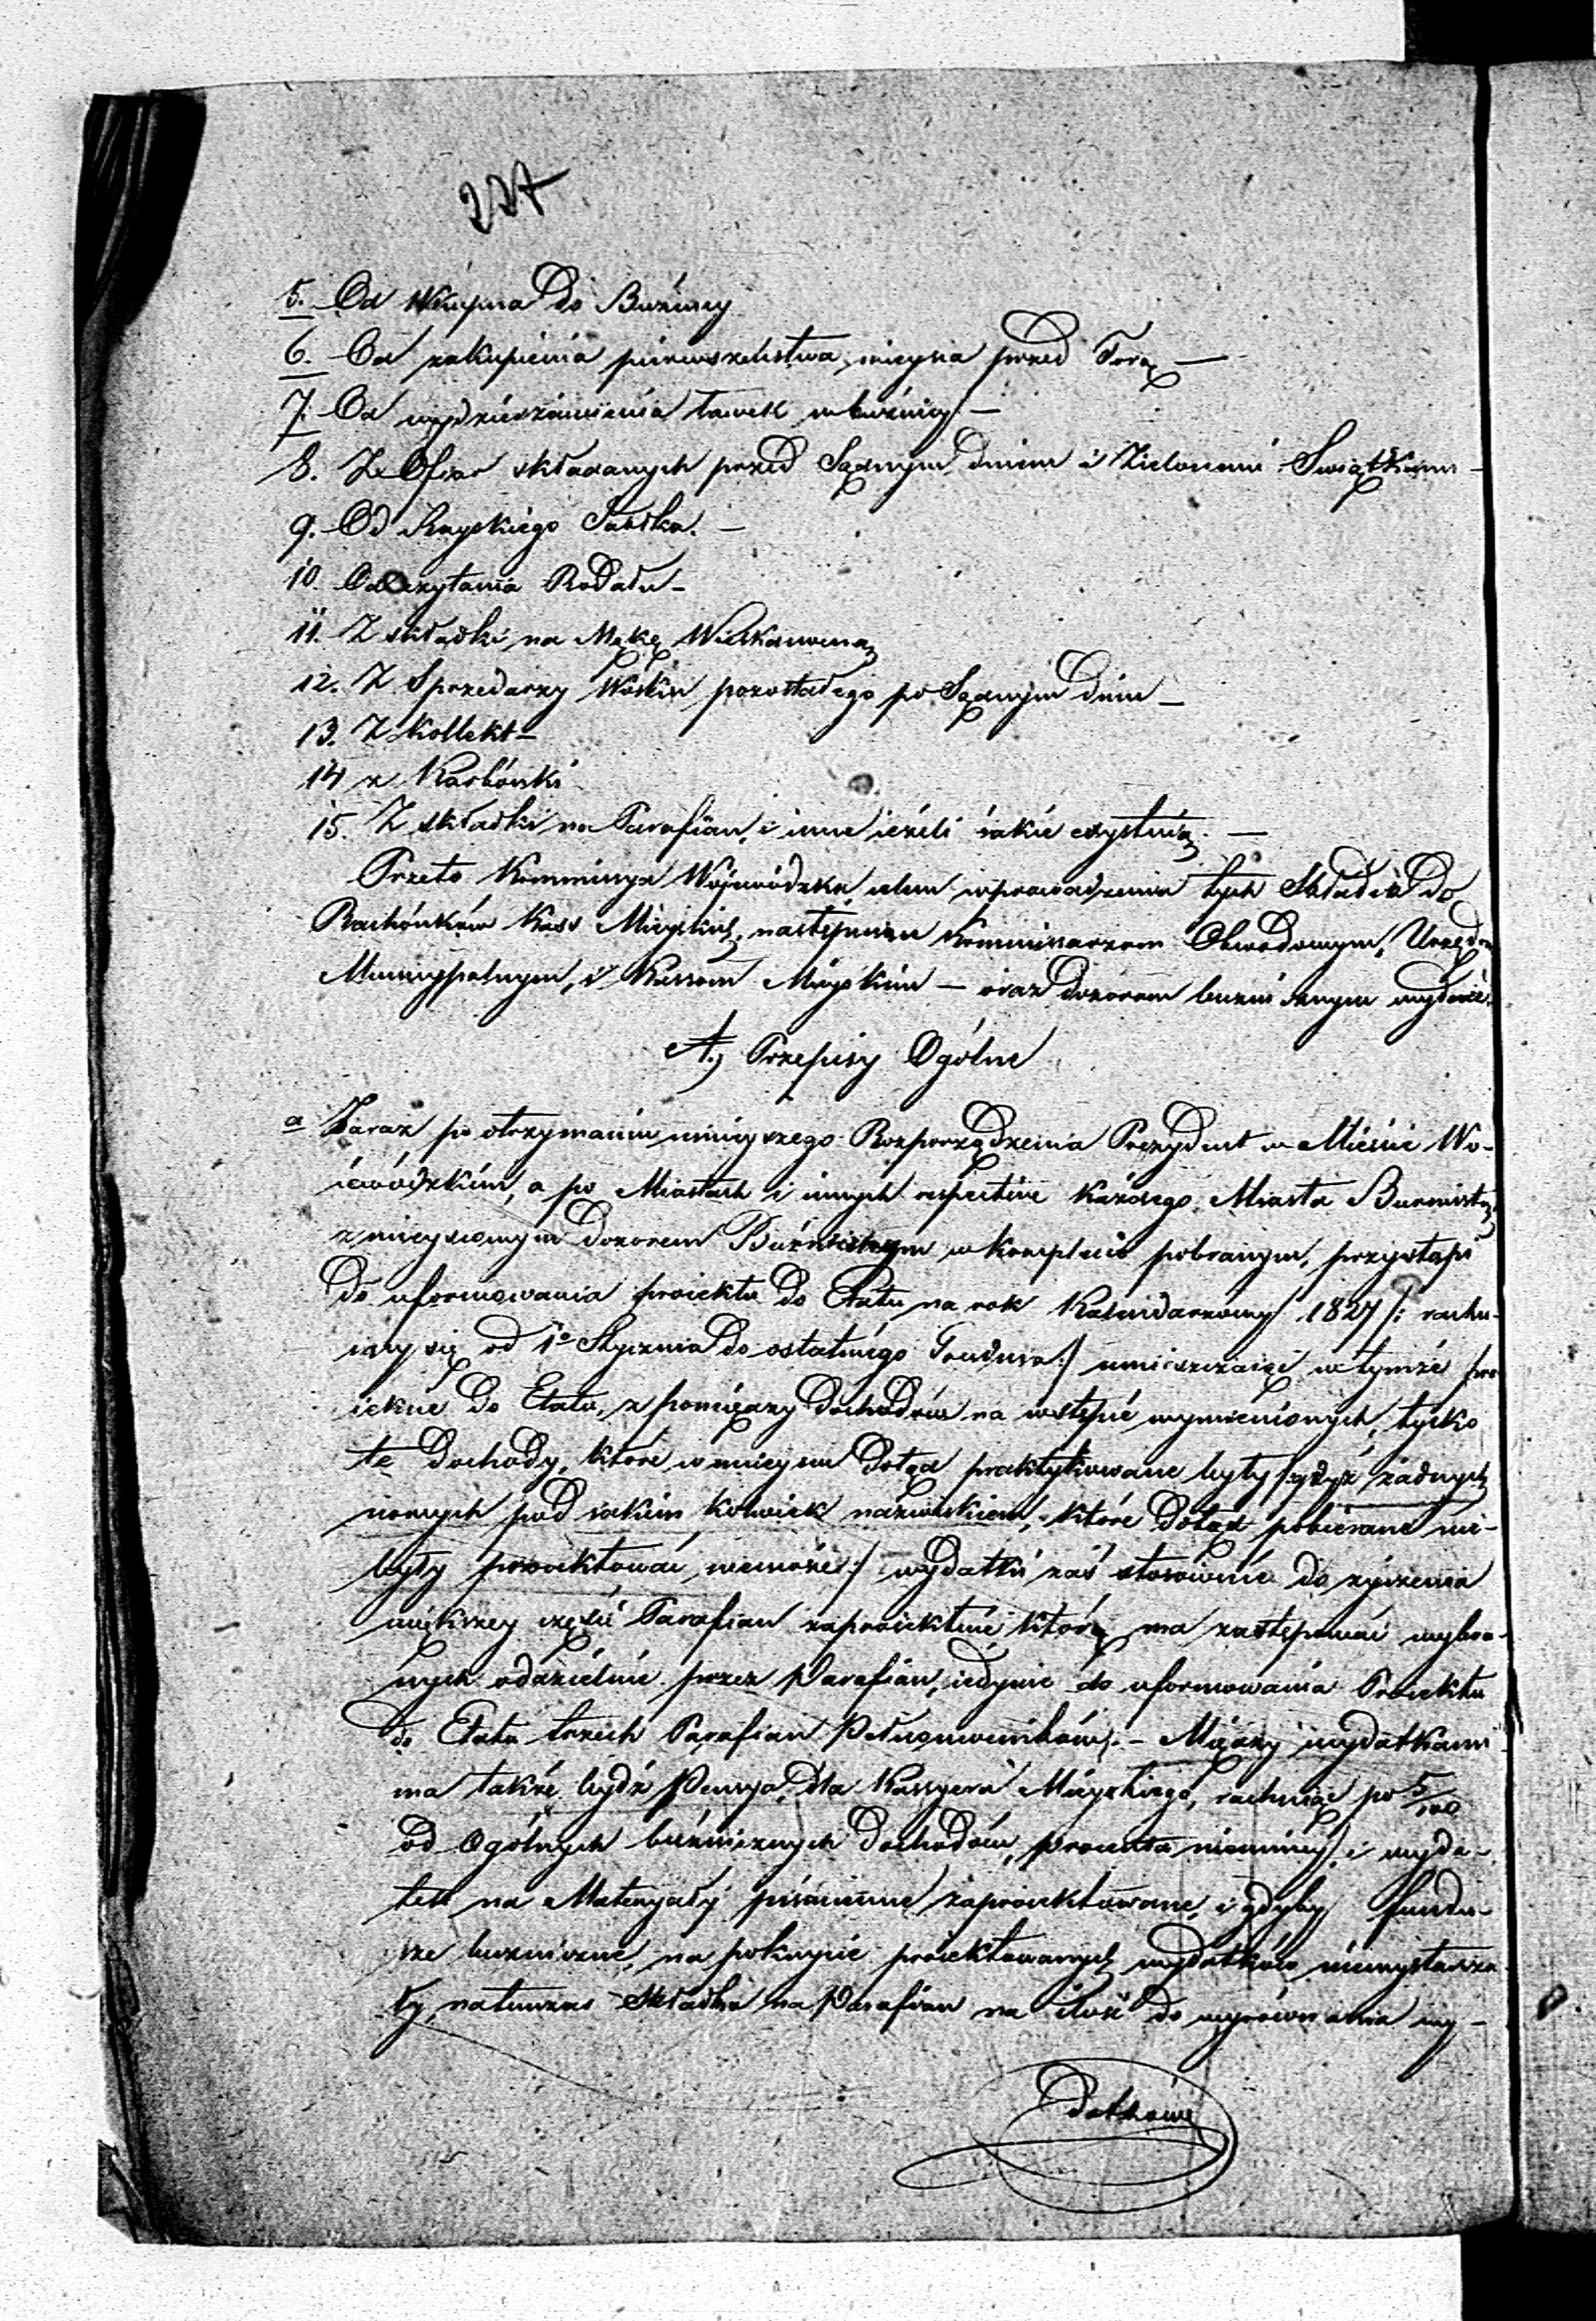 227
5. Od Wkupna do Bużnicy
6. Od zakupienia pierwszeństwa mieysca przed Torą —
7. Od wydzierżawienia ławek w bużnicy. —
8. Z Ofiar składanych przed Sądnym dniem i Zielonemi Swiątkami —
9. Od Rayskiego Jabłka. —
10. Od czytania Rodału —
11. Z składki na Mąkę Wielkanocną
12. Z Sprzedarzy Wosku pozostałego po Sądnym dniu —
13. Z Kollekt —
14 z Karbónki
15. Z składki na Parafian, i inne ieżeli iakie exystuią. —
Przeto Kommissya Wojewódzka celem wprowadzenia tych Składek do
Rachónków Kass Mieyskich, następnie Kommissarzom Obwodowym, Urzędom
Municypalnym, i Kassom Mieyskim — oraz dozorom bużnicznym wydaie.
A.) Przepisy Ogólne
a Zaraz po otrzymaniu ninieyszego Rozporządzenia Prezydent w Mieście Wo-
iewódzkim, a po Miastach i innych respective każdego Miasta Burmistrz
z mieyscowym dozorem Bużniczym w komplecie pobranym, przystąpi
do uformowania proiektu do Etatu na rok Kalendarzowy 1827 /: rachu-
iąc się od 1o Stycznia do ostatniego Grudnia :/ umieszczaiąc w tymże pro
iekcie do Etatu, z pomiędzy dochodów na wstępie wymienionych, tylko
te dochody, które w mieyscu dotąd praktykowane były /: gdyż żadnych
nowych pod iakiem kolwiek nazwiskiem, które dotąd pobierane nie-
były proiektować niemoże :/ wydatki zaś stosownie do życzenia
większey części Parafian zaproiektuie, którą ma zastępować wybra-
nych oddzielnie przez Parafian, iedynie do uformowania Proiektu
do Etatu trzech Parafian Pełnomocników. — Między wydatkami
ma także bydź Pensya, dla Kassyera Mieyskiego, rachuiąc po 5/100
od Ogólnych bużnicznych dochodów, procenta i wyda-
tek na Materyały piśmienne zaproiektowane, i gdyby fundu-
sze bużniczne, na pokrycie proiektowanych wydatków niewystarcza
ły, natenczas Składka na Parafian na ilość do wyrównania wy-
datków